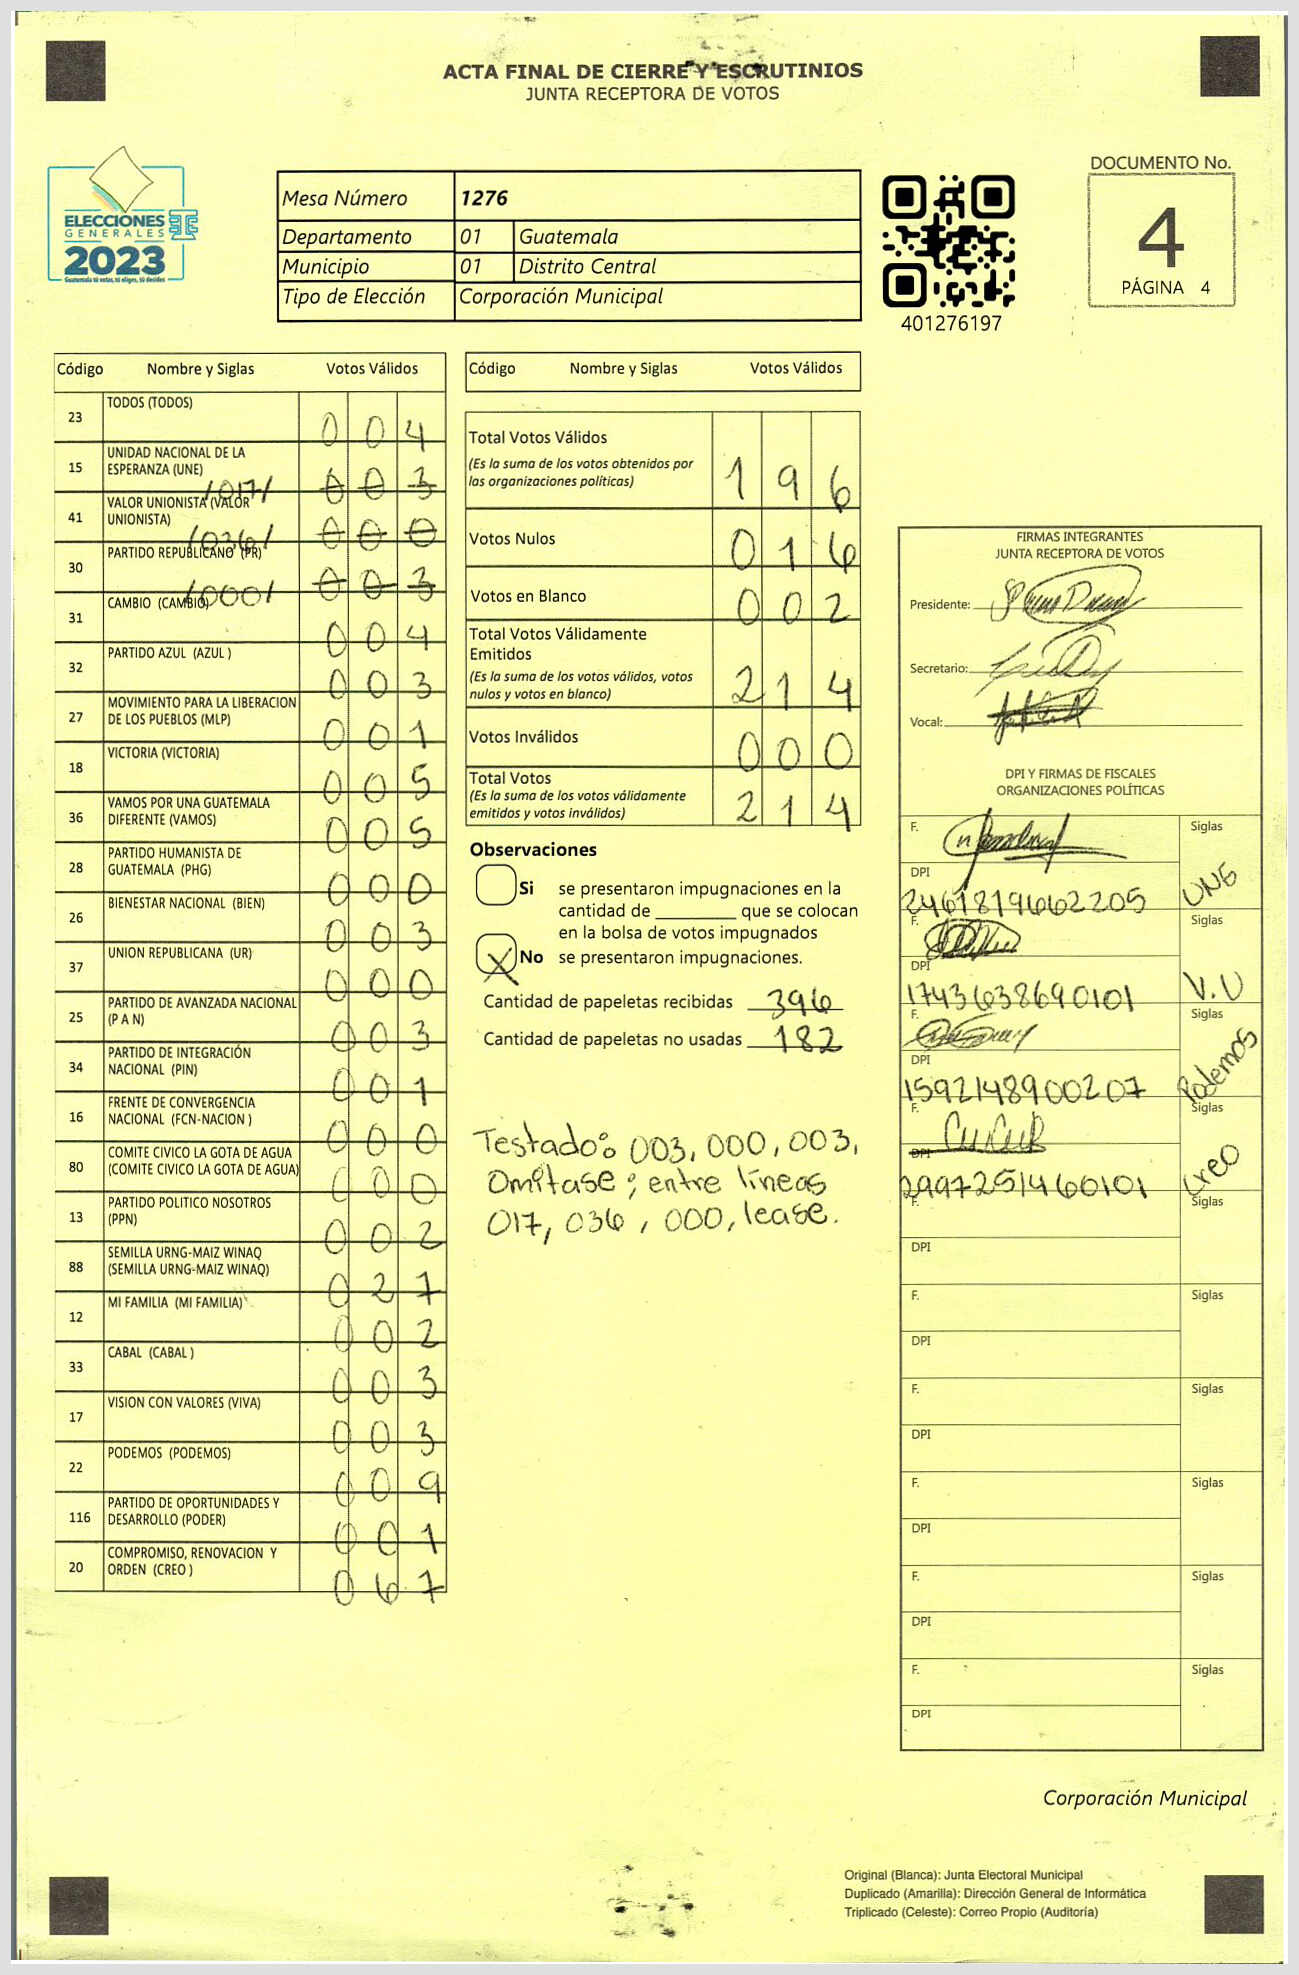 ACTA FINAL DE CIERRE Y ESCRUTINIOS
JUNTA RECEPTORA DE VOTOS
ELECCIONES
GENERALES
2023
Guatemala tú votas, tú eliges, tú decides
Mesa Número 1276
Departamento 01 Guatemala
Municipio 01 Distrito Central
Tipo de Elección Corporación Municipal
401276197
DOCUMENTO No.
4
PÁGINA 4
Código Nombre y Siglas Votos Válidos
23 TODOS (TODOS) 0 0 4
15 UNIDAD NACIONAL DE LA ESPERANZA (UNE) /017/ 0 0 3
41 VALOR UNIONISTA (VALOR UNIONISTA) /036/ 0 0 0
30 PARTIDO REPUBLICANO (PR) /000/ 0 0 3
31 CAMBIO (CAMBIO) 0 0 4
32 PARTIDO AZUL (AZUL ) 0 0 3
27 MOVIMIENTO PARA LA LIBERACION DE LOS PUEBLOS (MLP) 0 0 1
18 VICTORIA (VICTORIA) 0 0 5
36 VAMOS POR UNA GUATEMALA DIFERENTE (VAMOS) 0 0 5
28 PARTIDO HUMANISTA DE GUATEMALA (PHG) 0 0 0
26 BIENESTAR NACIONAL (BIEN) 0 0 3
37 UNION REPUBLICANA (UR) 0 0 0
25 PARTIDO DE AVANZADA NACIONAL (P A N) 0 0 3
34 PARTIDO DE INTEGRACIÓN NACIONAL (PIN) 0 0 1
16 FRENTE DE CONVERGENCIA NACIONAL (FCN-NACION ) 0 0 0
80 COMITE CIVICO LA GOTA DE AGUA (COMITE CIVICO LA GOTA DE AGUA) 0 0 0
13 PARTIDO POLITICO NOSOTROS (PPN) 0 0 2
88 SEMILLA URNG-MAIZ WINAQ (SEMILLA URNG-MAIZ WINAQ) 0 2 7
12 MI FAMILIA (MI FAMILIA) 0 0 2
33 CABAL (CABAL ) 0 0 3
17 VISION CON VALORES (VIVA) 0 0 3
22 PODEMOS (PODEMOS) 0 0 9
116 PARTIDO DE OPORTUNIDADES Y DESARROLLO (PODER) 0 0 1
20 COMPROMISO, RENOVACION Y ORDEN (CREO ) 0 6 7
Código Nombre y Siglas Votos Válidos
Total Votos Válidos
(Es la suma de los votos obtenidos por
las organizaciones políticas) 1 9 6
Votos Nulos 0 1 6
Votos en Blanco 0 0 2
Total Votos Válidamente
Emitidos
(Es la suma de los votos válidos, votos
nulos y votos en blanco) 2 1 4
Votos Inválidos 0 0 0
Total Votos
(Es la suma de los votos válidamente
emitidos y votos inválidos) 2 1 4
Observaciones
Si se presentaron impugnaciones en la
cantidad de ________ que se colocan
en la bolsa de votos impugnados
X No se presentaron impugnaciones.
Cantidad de papeletas recibidas 396
Cantidad de papeletas no usadas 182
Testado: 003, 000, 003,
Omítase; entre líneas
017, 036, 000, lease.
FIRMAS INTEGRANTES
JUNTA RECEPTORA DE VOTOS
Presidente:
Secretario:
Vocal:
DPI Y FIRMAS DE FISCALES
ORGANIZACIONES POLÍTICAS
F. Siglas
DPI
2461819662205 UNE
F. Siglas
DPI
1743638690101 V.U
F. Siglas
DPI
1592148900207 Podemos
F. Siglas
DPI
2997251460101 Creo
F. Siglas
DPI
F. Siglas
DPI
F. Siglas
DPI
F. Siglas
DPI
F. Siglas
DPI
F. Siglas
DPI
Corporación Municipal
Original (Blanca): Junta Electoral Municipal
Duplicado (Amarilla): Dirección General de Informática
Triplicado (Celeste): Correo Propio (Auditoría)